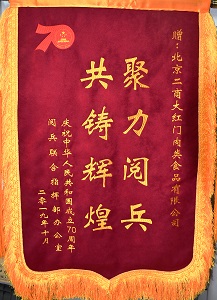 赠：北京二商大红门肉类食品有限公司
聚力阅兵
共铸辉煌
庆祝中华人民共和国成立70周年
阅兵联合指挥部办公室
二〇一九年十月
70